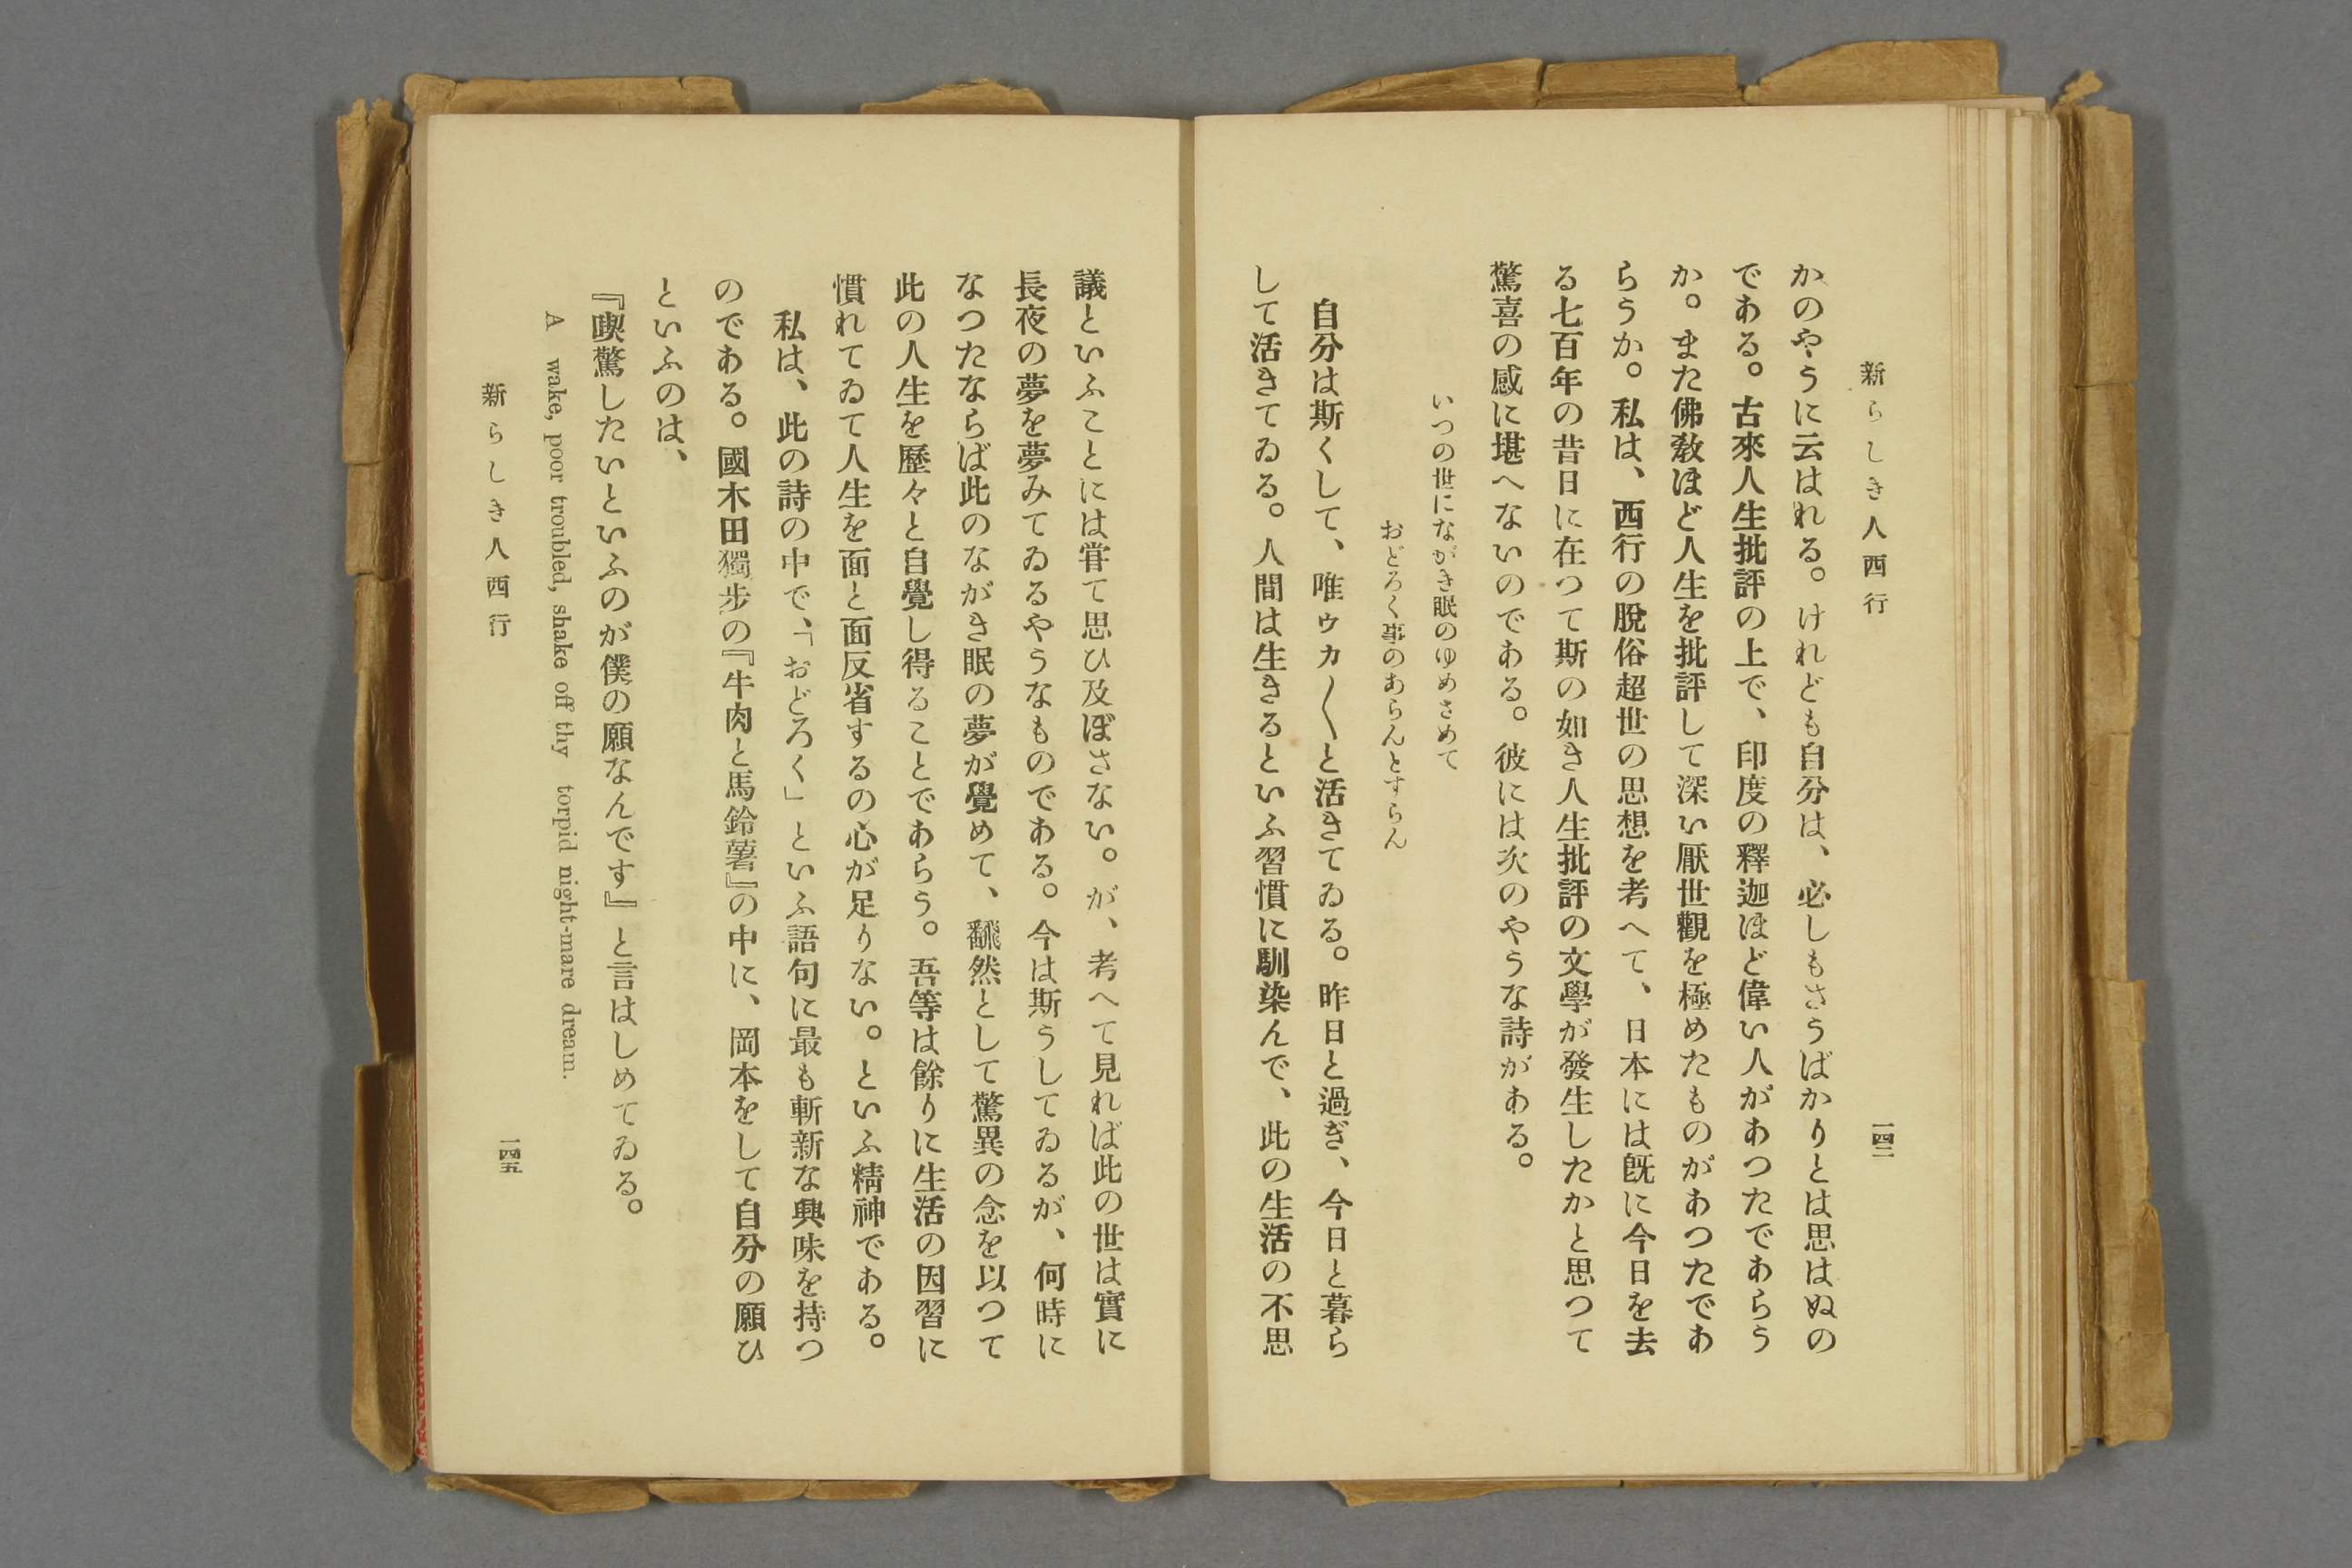 新らしき人西行
一四二
かのやうに云はれる。けれども自分は、必しもさうばかりとは思はぬの
である。古來人生批評の上で、印度の釋迦ほど偉い人があつたであらう
か。また佛敎ほど人生を批評して深い厭世觀を極めたものがあつたであ
らうか。私は、西行の脫俗超世の思想を考へて、日本には旣に今日を去
る七百年の昔日に在つて斯の如き人生批評の文學が發生したかと思つて
驚喜の感に堪へないのである。彼には次のやうな詩がある。
いつの世にながき眠のゆめさめて
おどろく事のあらんとすらん
自分は斯くして、唯ゥカ〳〵と活きてゐる。昨日と過ぎ、今日と暮ら
して活きてゐる。人間は生きるといふ習慣に馴染んで、此の生活の不思
議といふことには甞て思ひ及ぼさない。が、考へて見れば此の世は實に
長夜の夢を夢みてゐるやうなものである。今は斯うしてゐるが、何時に
なつたならば此のながき眠の夢が覺めて、飜然として驚異の念を以つて
此の人生を歷々と自覺し得ることであらう。吾等は餘りに生活の因習に
慣れてゐて人生を面と面反省するの心が足りない。といふ精神である。
私は、此の詩の中で、「おどろく」といふ語句に最も斬新な興味を持つ
のである。國木田獨步の『牛肉と馬鈴薯』の中に、岡本をして自分の願ひ
といふのは、
『喫驚したいといふのが僕の願なんです』と言はしめてゐる。
A wake, poor troubled, shake off thy torpid night-mare dream.
新らしき人西行
一四五